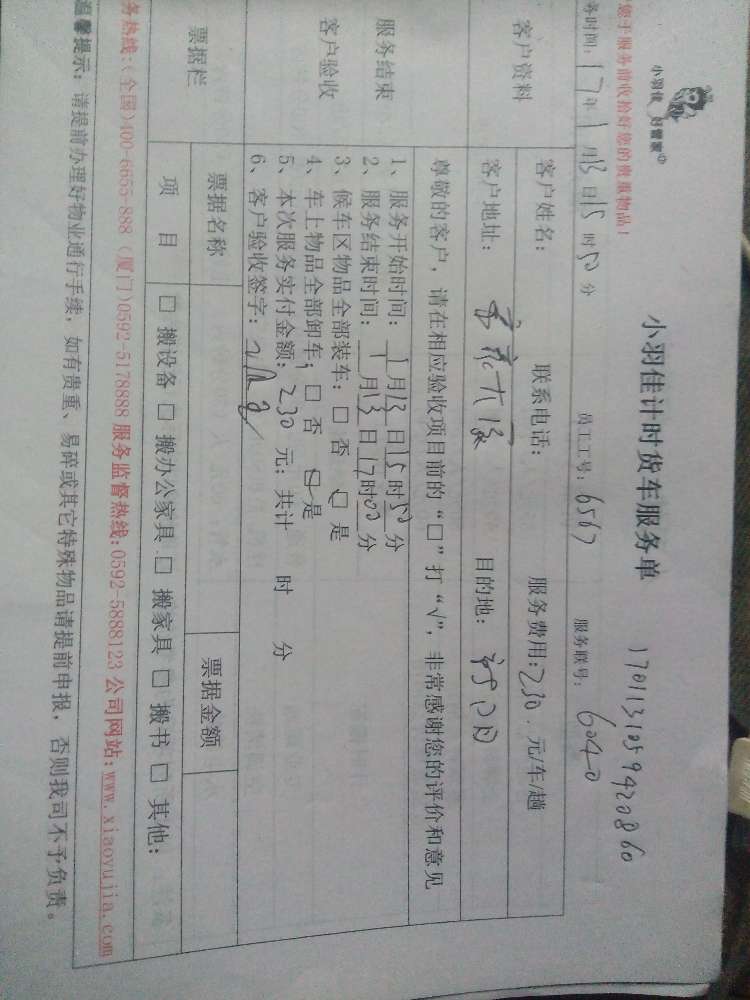 小羽佳 好管家
您于服务前收拾好您的贵重物品！
小羽佳计时货车服务单
1701131059420860
务时间: 17年 1 月 13 日 15 时 50 分 员工工号: 6567 服务联号: 6040
客户资料
客户姓名: 联系电话: 服务费用: 230 元/车/趟
客户地址: 目的地:
服务结束
客户验收
尊敬的客户，请在相应验收项目前的“□”打“√”，非常感谢您的评价和意见
1、服务开始时间: 1 月 13 日 15 时 50 分
2、服务结束时间: 1 月 13 日 17 时 00 分
3、候车区物品全部装车: □ 否 □ 是
4、车上物品全部卸车: □ 否 □ 是
5、本次服务实付金额: 230 元; 共计 时 分
6、客户验收签字:
票据栏
票据名称 票据金额
项 目 □ 搬设备 □ 搬办公家具 □ 搬家具 □ 搬书 □ 其他:
务热线:(全国)400-6655-888 (厦门)0592-5178888 服务监督热线:0592-5888123 公司网站:www.xiaoyujia.com
温馨提示: 请提前办理好物业通行手续，如有贵重、易碎或其它特殊物品请提前申报，否则我司不予负责。